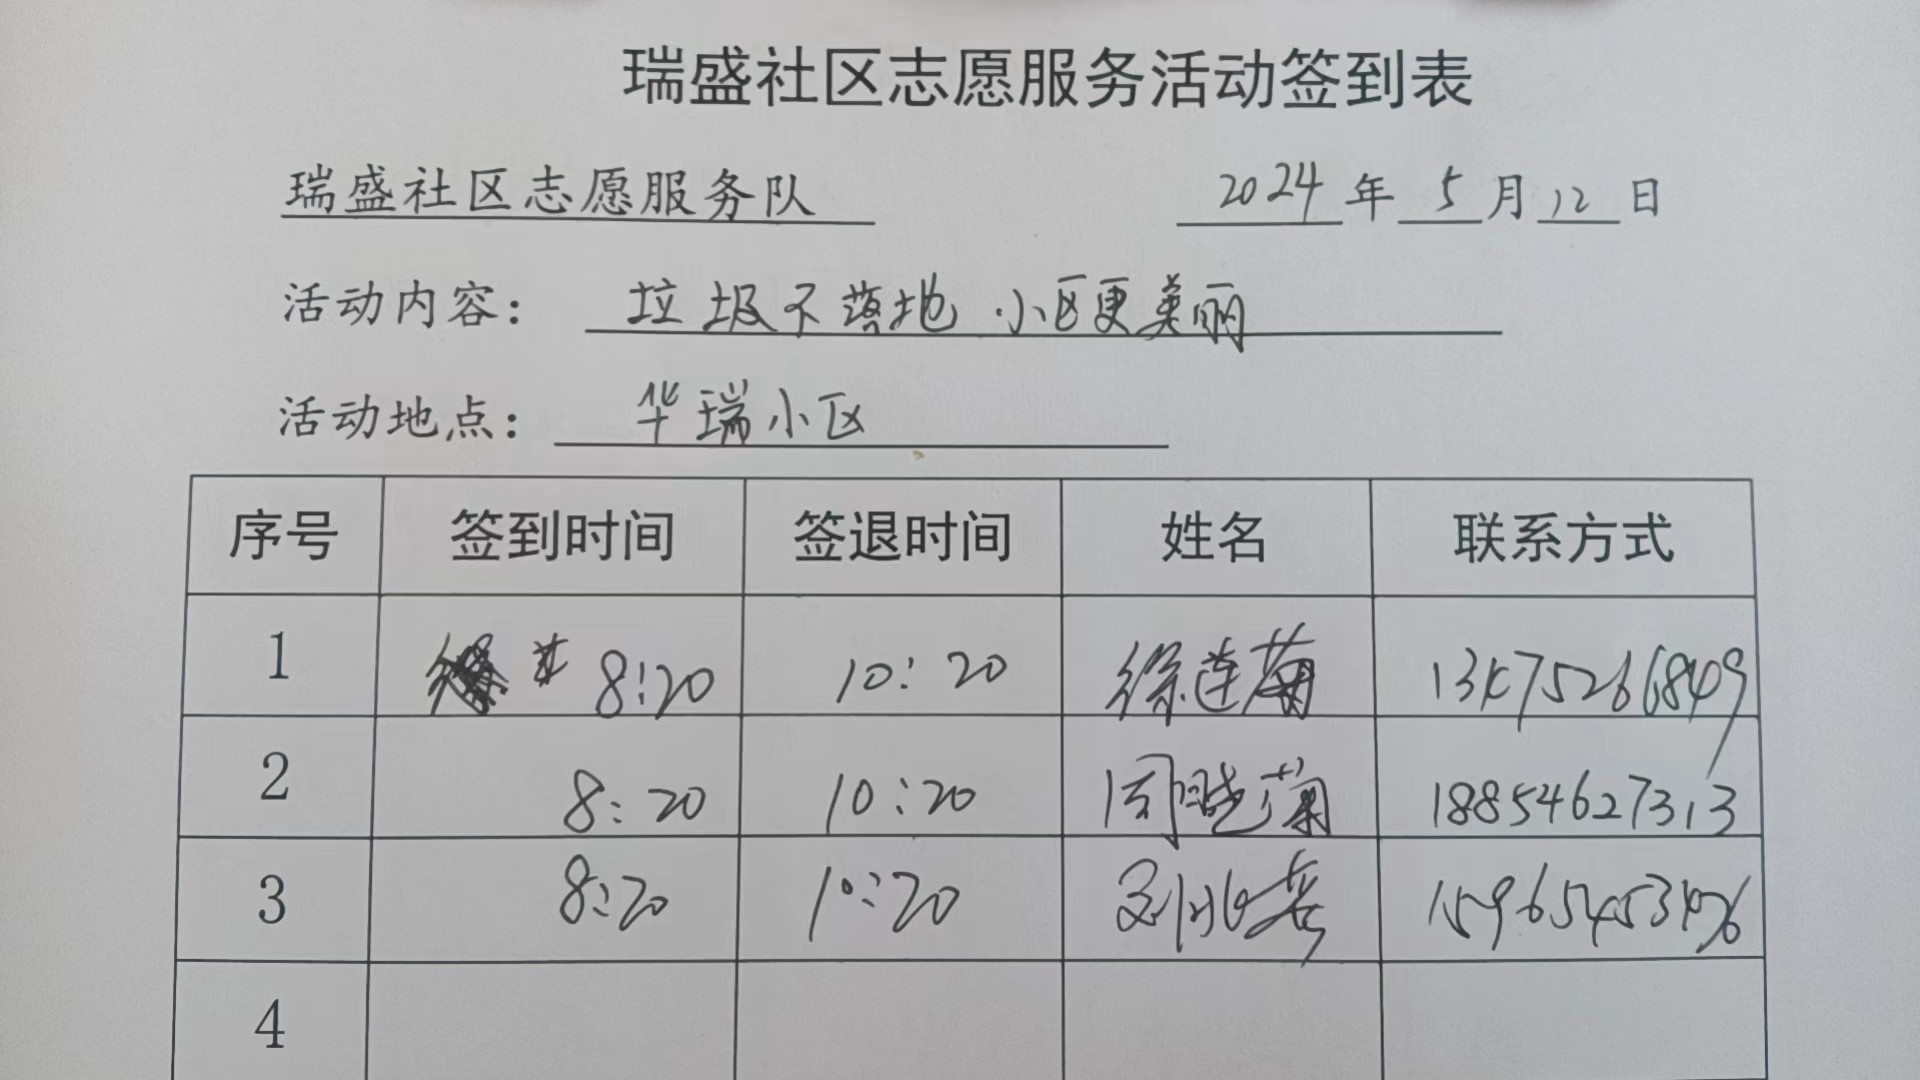 瑞盛社区志愿服务活动签到表
瑞盛社区志愿服务队 2024年5月12日
活动内容: 垃圾不落地 小区更美丽
活动地点: 华瑞小区
序号 签到时间 签退时间 姓名 联系方式
1 8:20 10:20 徐连菊
2 8:20 10:20 周晓菊 18854627313
3 8:20 10:20
4